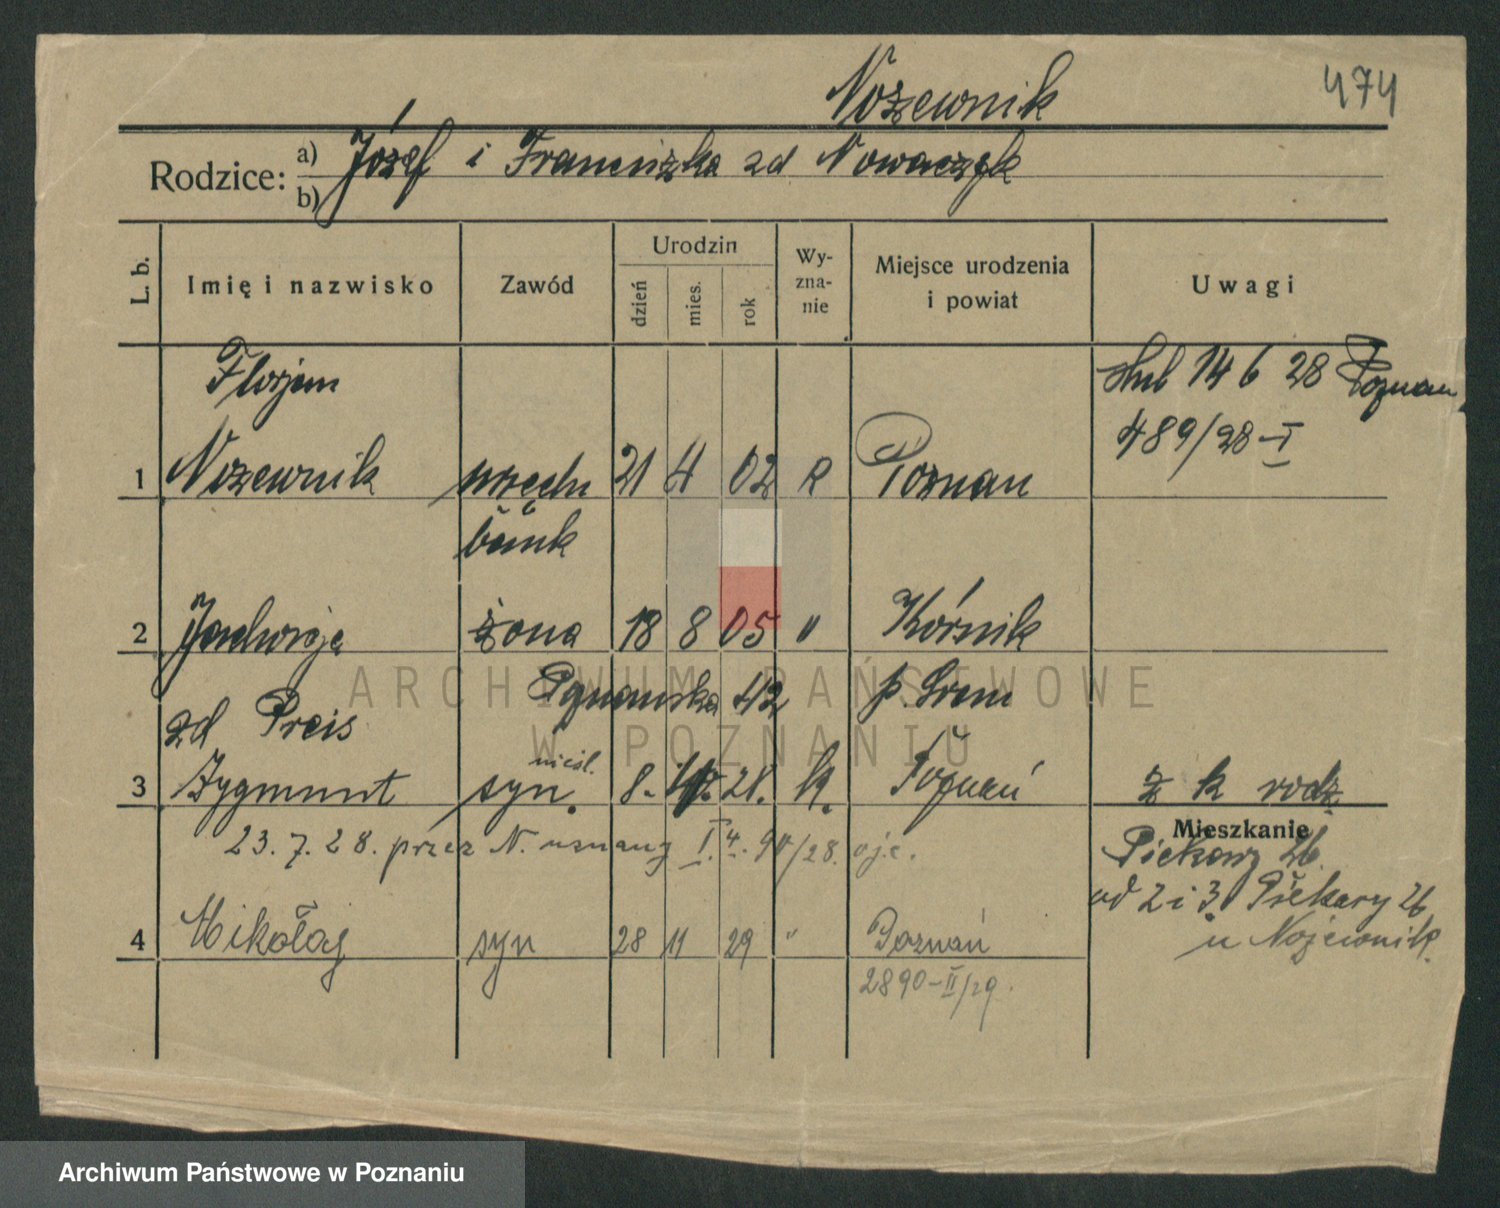 Nożewnik 474
Rodzice: a) Józef i Franciszka zd Nowaczyk
b)
L. b. Imię i nazwisko Zawód Urodzin dzień mies. rok Wyznanie Miejsce urodzenia i powiat Uwagi
Florjan ślub 14 6 28 Poznan
489/28-I
1 Nożewnik urzędn 21 4 02 R Poznan
bank
2 Jadwiga żona 18 8 05 " Kórnik
Poznanska 42 p. Srem
zd Preis
nieśl.
3 Zygmunt syn. 8. 28. R. Poznań z k rodz
23. 7. 28. przez N. uznany I. 4. 90/28. ojc.
Mieszkanie
Piekary 26.
od 2 i 3. Piekary 26
u Nożewnik.
4 Mikołaj syn 28 11 29 " Poznań
2890-II/29.
ARCHIWUM PAŃSTWOWE
W POZNANIU
Archiwum Państwowe w Poznaniu